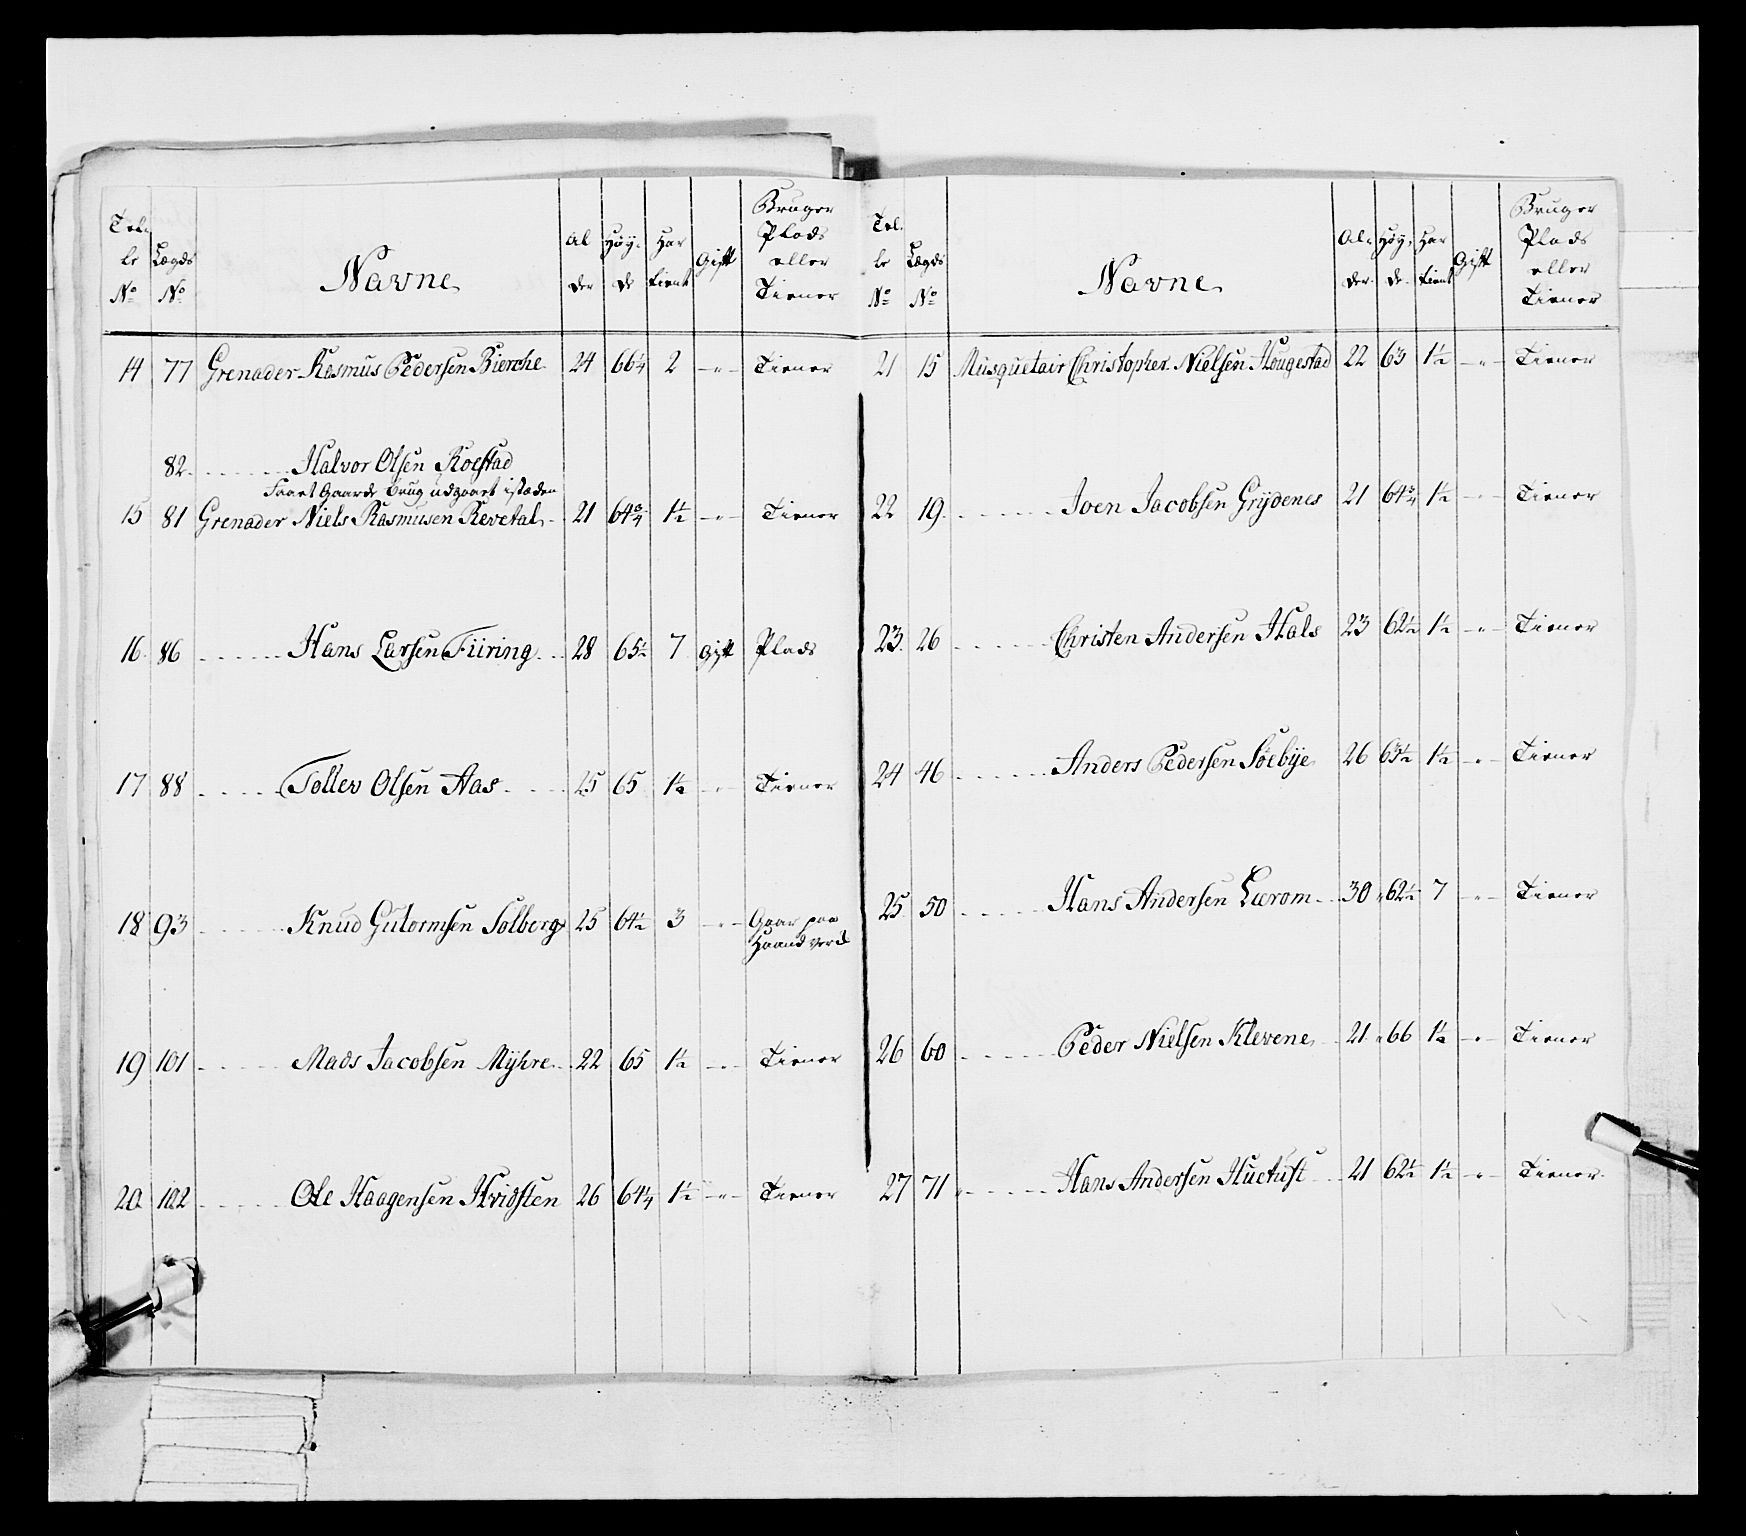 Tel- le No | Lægds No | Navne | Al der | Høy- de | Har tient | Gift | Bruger Plads eller Tiener
14 77 Grenader Rasmus Pedersen Bierche 24 66¼ 2 -"- Tiener
82 Halvor Olsen Roestad
Faaet Gaards brug udgaaet istæden
15 81 Grenader Niels Rasmusen Revetal 21 64¾ 1½ -"- Tiener
16 86 Hans Larsen Füring 28 65½ 7 Gift Plads
17 88 Tollev Olsen Aas 25 65 1½ -"- Tiener
18 93 Knud Gutormsen Solberg 25 64½ 3 -"- Gaar paa
Haandverk
19 101 Mads Jacobsen Mÿhre 22 65 1½ -"- Tiener
20 102 Ole Haagensen Hvidsten 26 64¼ 1½ -"- Tiener
Tel- le No | Lægds No | Navne | Al- der | Høy- de | Har tient | Gift | Bruger Plads eller Tiener
21 15 Musquetair Christopher Nielsen Hougestad 22 63 1½ -"- Tiener
22 19 Joen Jacobsen Grÿdenes 21 64¾ 1½ -"- Tiener
23 26 Christen Andersen Hals 23 62½ 1½ -"- Tiener
24 46 Anders Pedersen Søebÿe 26 63½ 1½ -"- Tiener
25 50 Hans Andersen Lærom 30 62½ 7 -"- Tiener
26 60 Peder Nielsen Klevene 21 66 1½ -"- Tiener
27 71 Hans Andersen Huetust 21 62½ 1½ -"- Tiener